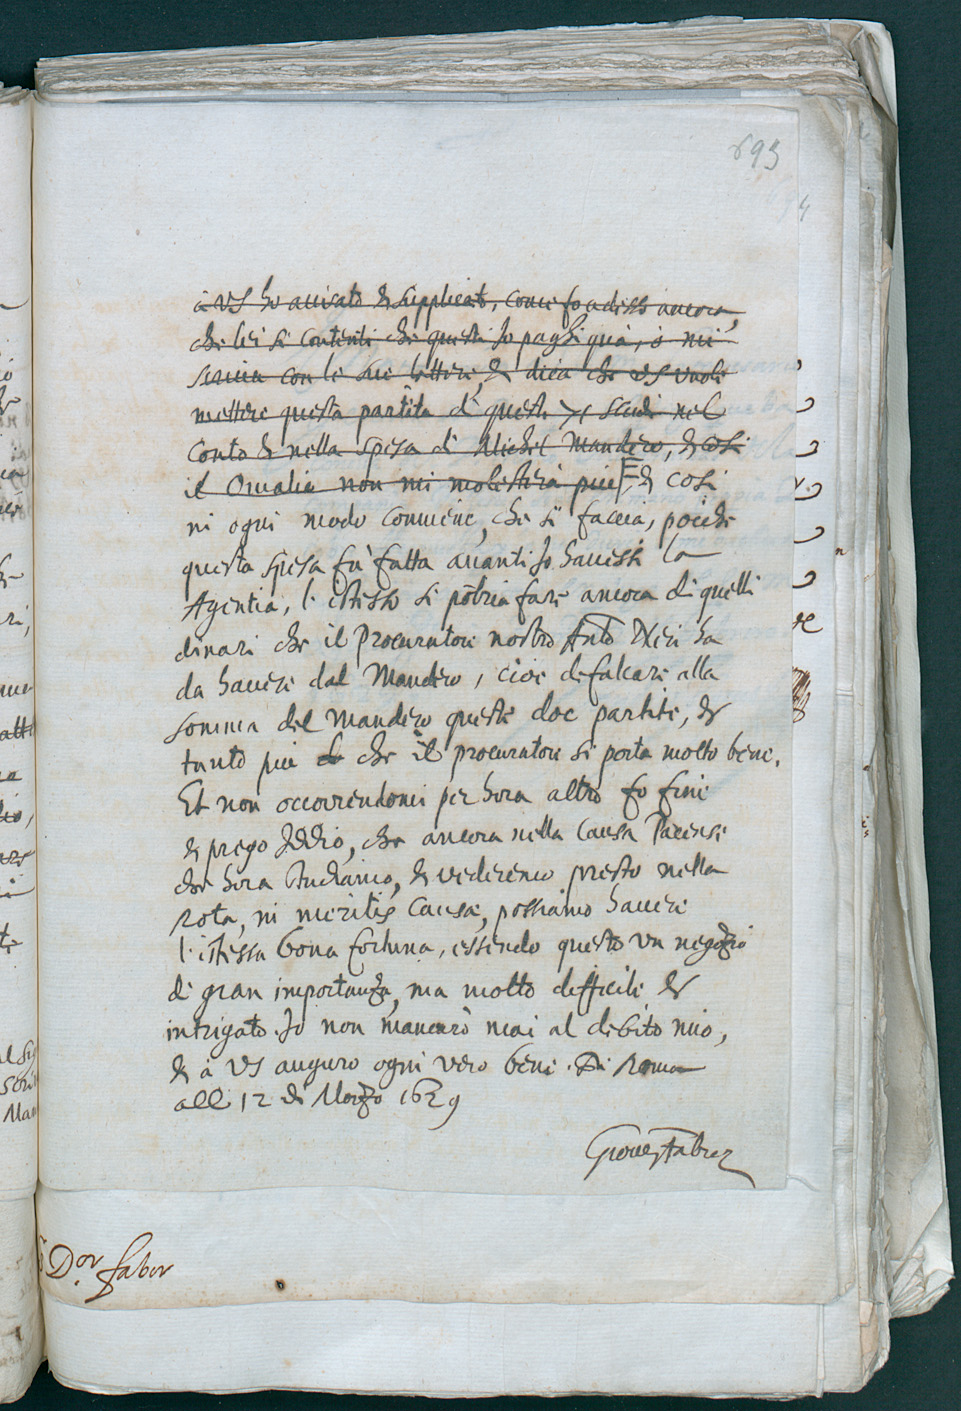 693
à VS ho auisato & supplicato, come fo adesso ancora,
che lei si contenti che questi Io paghi quà, ò mi
scriua con le sue lettere, & dica che VS vuole
mettere questa partita di questi scudi nel
conto & nella spesa di Michel Mandero, & così
il Omalia non mi molesterà più, & così
in ogni modo conuiene, che si faccia, poiche
questa spesa fù fatta auanti Io hauesti la
Agentia, l'istesso si potria fare ancora di quelli
dinari che il Procuratore nostro Anto ha
da hauere dal Mandero, cioe defalcare alla
somma del Mandero queste doe partite, &
tanto piu che il procuratore si porta molto bene.
Et non occorrendomi per hora altro fo fine
& prego Iddio, che ancora nella Causa Pacense
che hora Audiamo, & vederemo presto nella
Rota, in meritis Causæ, possiamo hauere
l'istessa bona fortuna, essendo questo un negozio
di gran importanza, ma molto difficile &
intrigato. Io non mancarò mai al debito mio,
& à VS auguro ogni vero bene. Di Roma
alli 12 di Marzo 1629
Faber
Dor. fabor